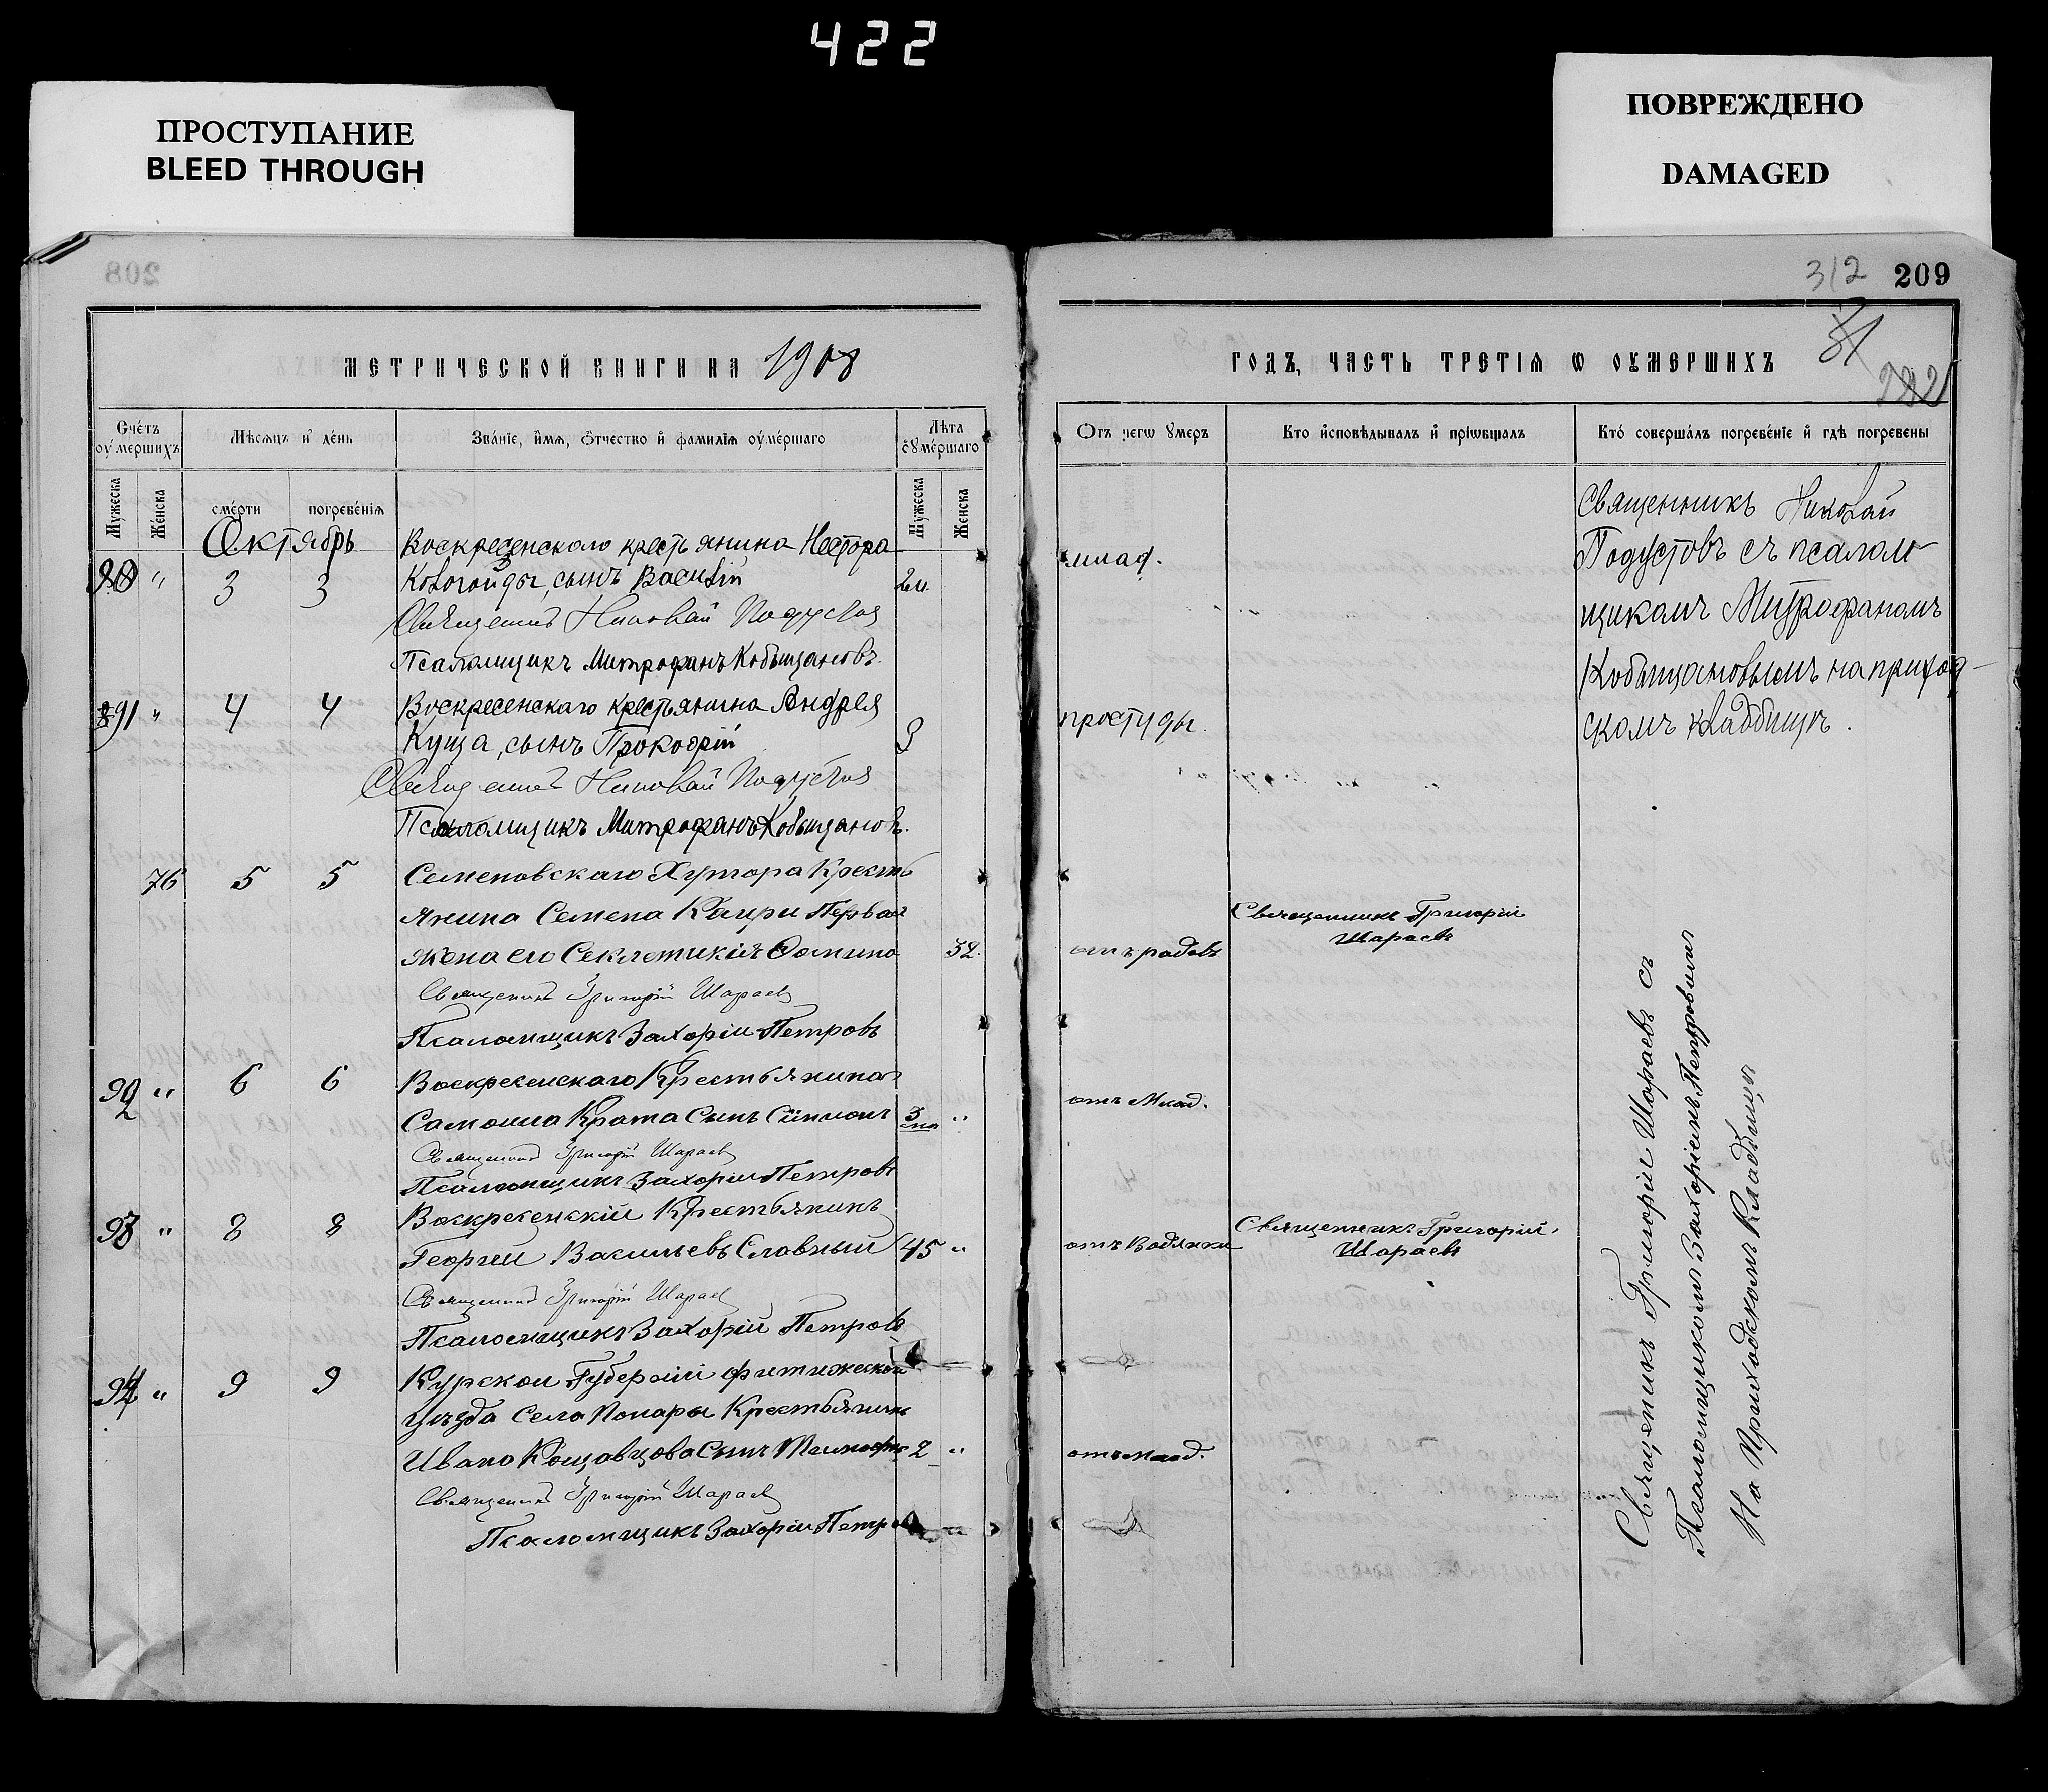 422
ПРОСТУПАНИЕ
BLEED THROUGH
ПОВРЕЖДЕНО
DAMAGED
208
312 209
81
282
МЕТРИЧЕСКОЙ КНИГИ НА 1908
ГОДЪ, ЧАСТЬ ТРЕТІЯ Ѡ ОУМЕРШИХЪ
Счетъ оумершихъ
Мѣсяцъ и день
Званіе, имя, отчество и фамилія оумершаго
Лѣта оумершаго
Отъ чегѡ умеръ
Кто исповѣдывалъ и пріѡбщалъ
Кто совершалъ погребеніе и гдѣ погребены
Мужеска
Женска
смерти
погребенія
Мужеска
Женска
Октябрь
Воскресенскаго крестьянина Нестора
90 " 3 3 сынъ Василій 2м.
млад.
Священникъ Николай Подустов
Псаломщикъ Митрофанъ Кобыщановъ.
91 " 4 4 Воскресенскаго крестьянина Андрея
Куща, сынъ Прокофій 3
простуды.
Священник Николай Подустов
Псаломщикъ Митрофанъ Кобыщановъ.
Священникъ Николай
Подустовъ съ псалом-
щикомъ Митрофаномъ
Кобыщановымъ на приход-
скомъ кладбищѣ.
76 5 5 Семеновскаго Хутора Кресть
янина Семена Каири Первая
жена его Фомина 32.
отъ родовъ
Священникъ Григорій
Шараевъ
Священникъ Григорій Шараев
Псаломщикъ Захоріи Петровъ
92 " 6 6 Воскресенскаго Крестьянина
Самоила Крата Сынъ Симионъ 3 мѣс "
отъ Млад.
Священникъ Григорій Шараев
Псаломщикъ Захоріи Петровъ
93 " 8 8 Воскресенскій Крестьянинъ
Георгий Васильевъ Славный 45 "
отъ Водянки
Священникъ Григорій
Шараевъ
Священникъ Григорій Шараев
Псаломщикъ Захорій Петровъ
94 " 9 9 Курской Губерніи
уѣзда Села Крестьянина
Ивана Сынъ Тимофѣ 2 "
отъ млад.
Священникъ Григорій Шараев
Псаломщикъ Захоріи Петров
Священникъ Григоріи Шораевъ съ
Псаломщикомъ Захоріемъ Петровымъ
На Приходскомъ Кладбищѣ